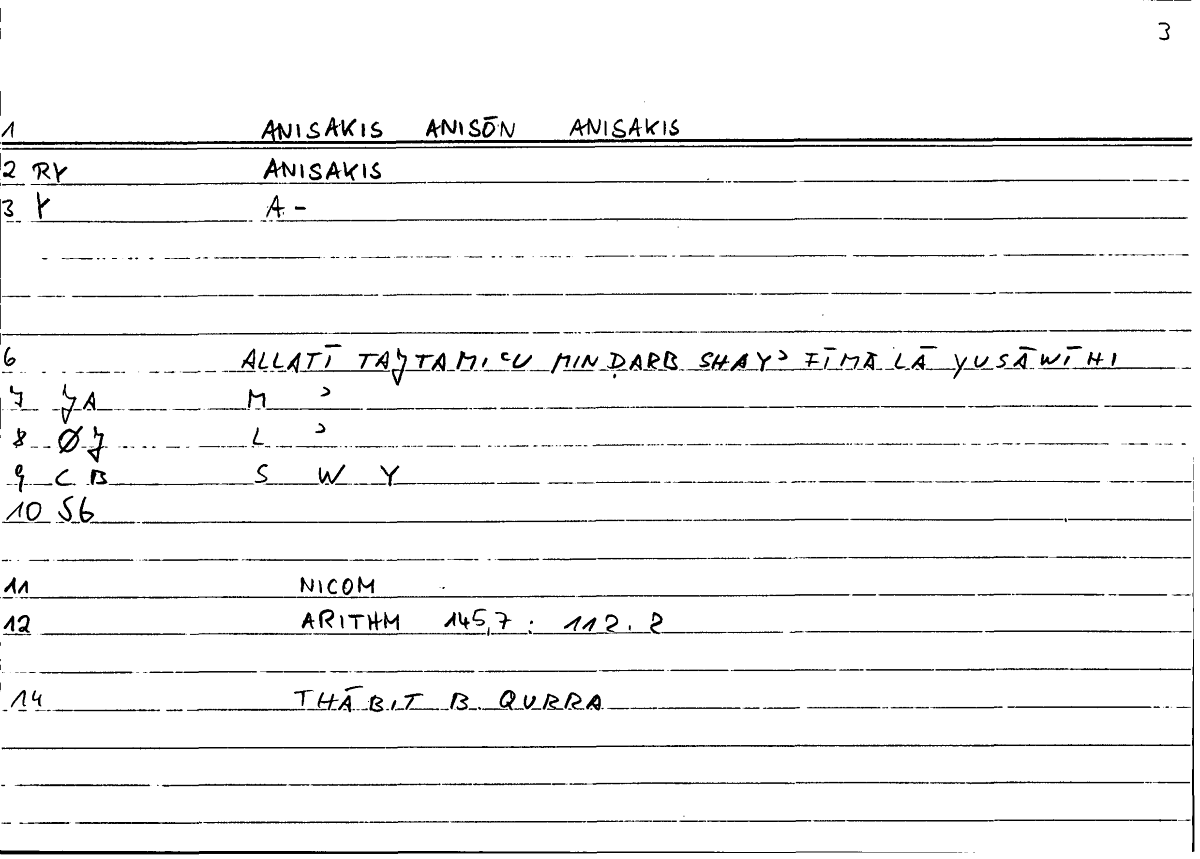 3
1 ANISAKIS ANISŌN ANISAKIS
2 RY ANISAKIS
3 Y A -
6 ALLATĪ TAJTAMIʿU MIN ḌARB SHAYʾ FĪMĀ LĀ YUSĀWĪHI
7 JA M ʾ
8 ØJ L ʾ
9 CB S W Y
10 56
11 NICOM
12 ARITHM 145,7 : 112.2
14 THĀBIT B. QURRA